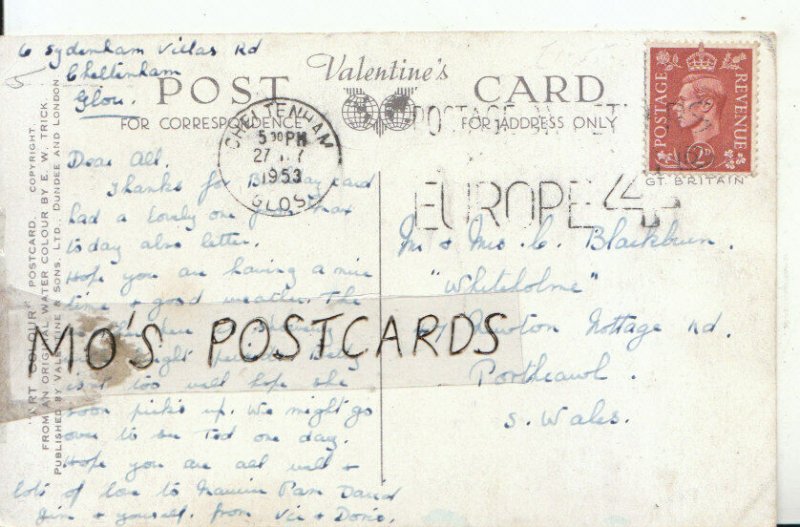 6 Sydenham Villas Rd
Cheltenham
Glou.
Valentine's
POST CARD
FOR CORRESPONDENCE
FOR ADDRESS ONLY
CHELTENHAM
5 30 PM
27
1953
GLOS
POSTAGE
EUROPE 4
POSTAGE REVENUE
2D
GT. BRITAIN
"ART COLOUR" POSTCARD. COPYRIGHT.
FROM AN ORIGINAL WATER COLOUR BY E. W. TRICK.
PUBLISHED BY VALENTINE & SONS, LTD., DUNDEE AND LONDON
Dear All.
Thanks for card
had a lovely one
today also letter.
Hope you are having a nice
time & good weather. The
MO'S POSTCARDS
isn't too well hope she
soon picks up. We might go
over to see Ted one day.
Hope you are all well &
lots of love to Pam David
Jim & yourself. from Vic & Doris.
Mr & Mrs C. Blackburn.
"Whiteholme"
Newton Nottage Rd.
Porthcawl.
S. Wales.